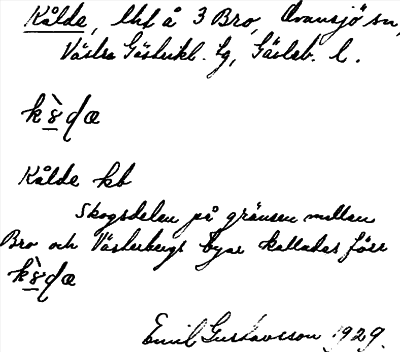 Kålde, lht å 3 Bro, Ovansjö sn,
Västra Gästrikl. tg, Gävleb. l.
k8̀dæ
Kålde kb
Skogsdelen på gränsen mellan
Bro och Västerbergs byar kallades förr
k8̀dæ
Emil Gustavsson 1929.